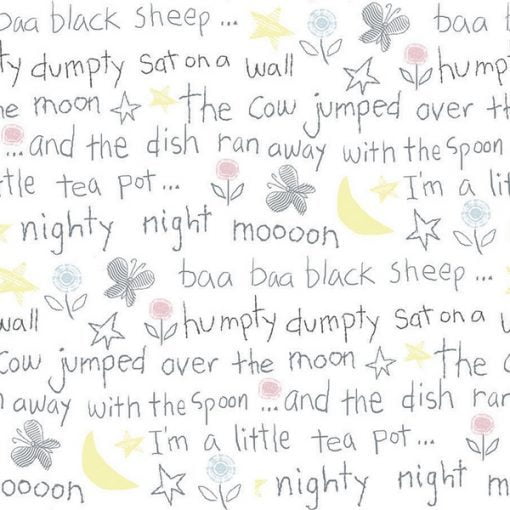 baa black sheep ... baa b
ty dumpty sat on a wall hump
he moon the cow jumped over th
...and the dish ran away with the spoon
ttle tea pot... I'm a lit
nighty night moooon
baa baa black sheep ...
wall humpty dumpty sat on a w
cow jumped over the moon the c
n away with the spoon ...and the dish ran
I'm a little tea pot...
oooon nighty night m